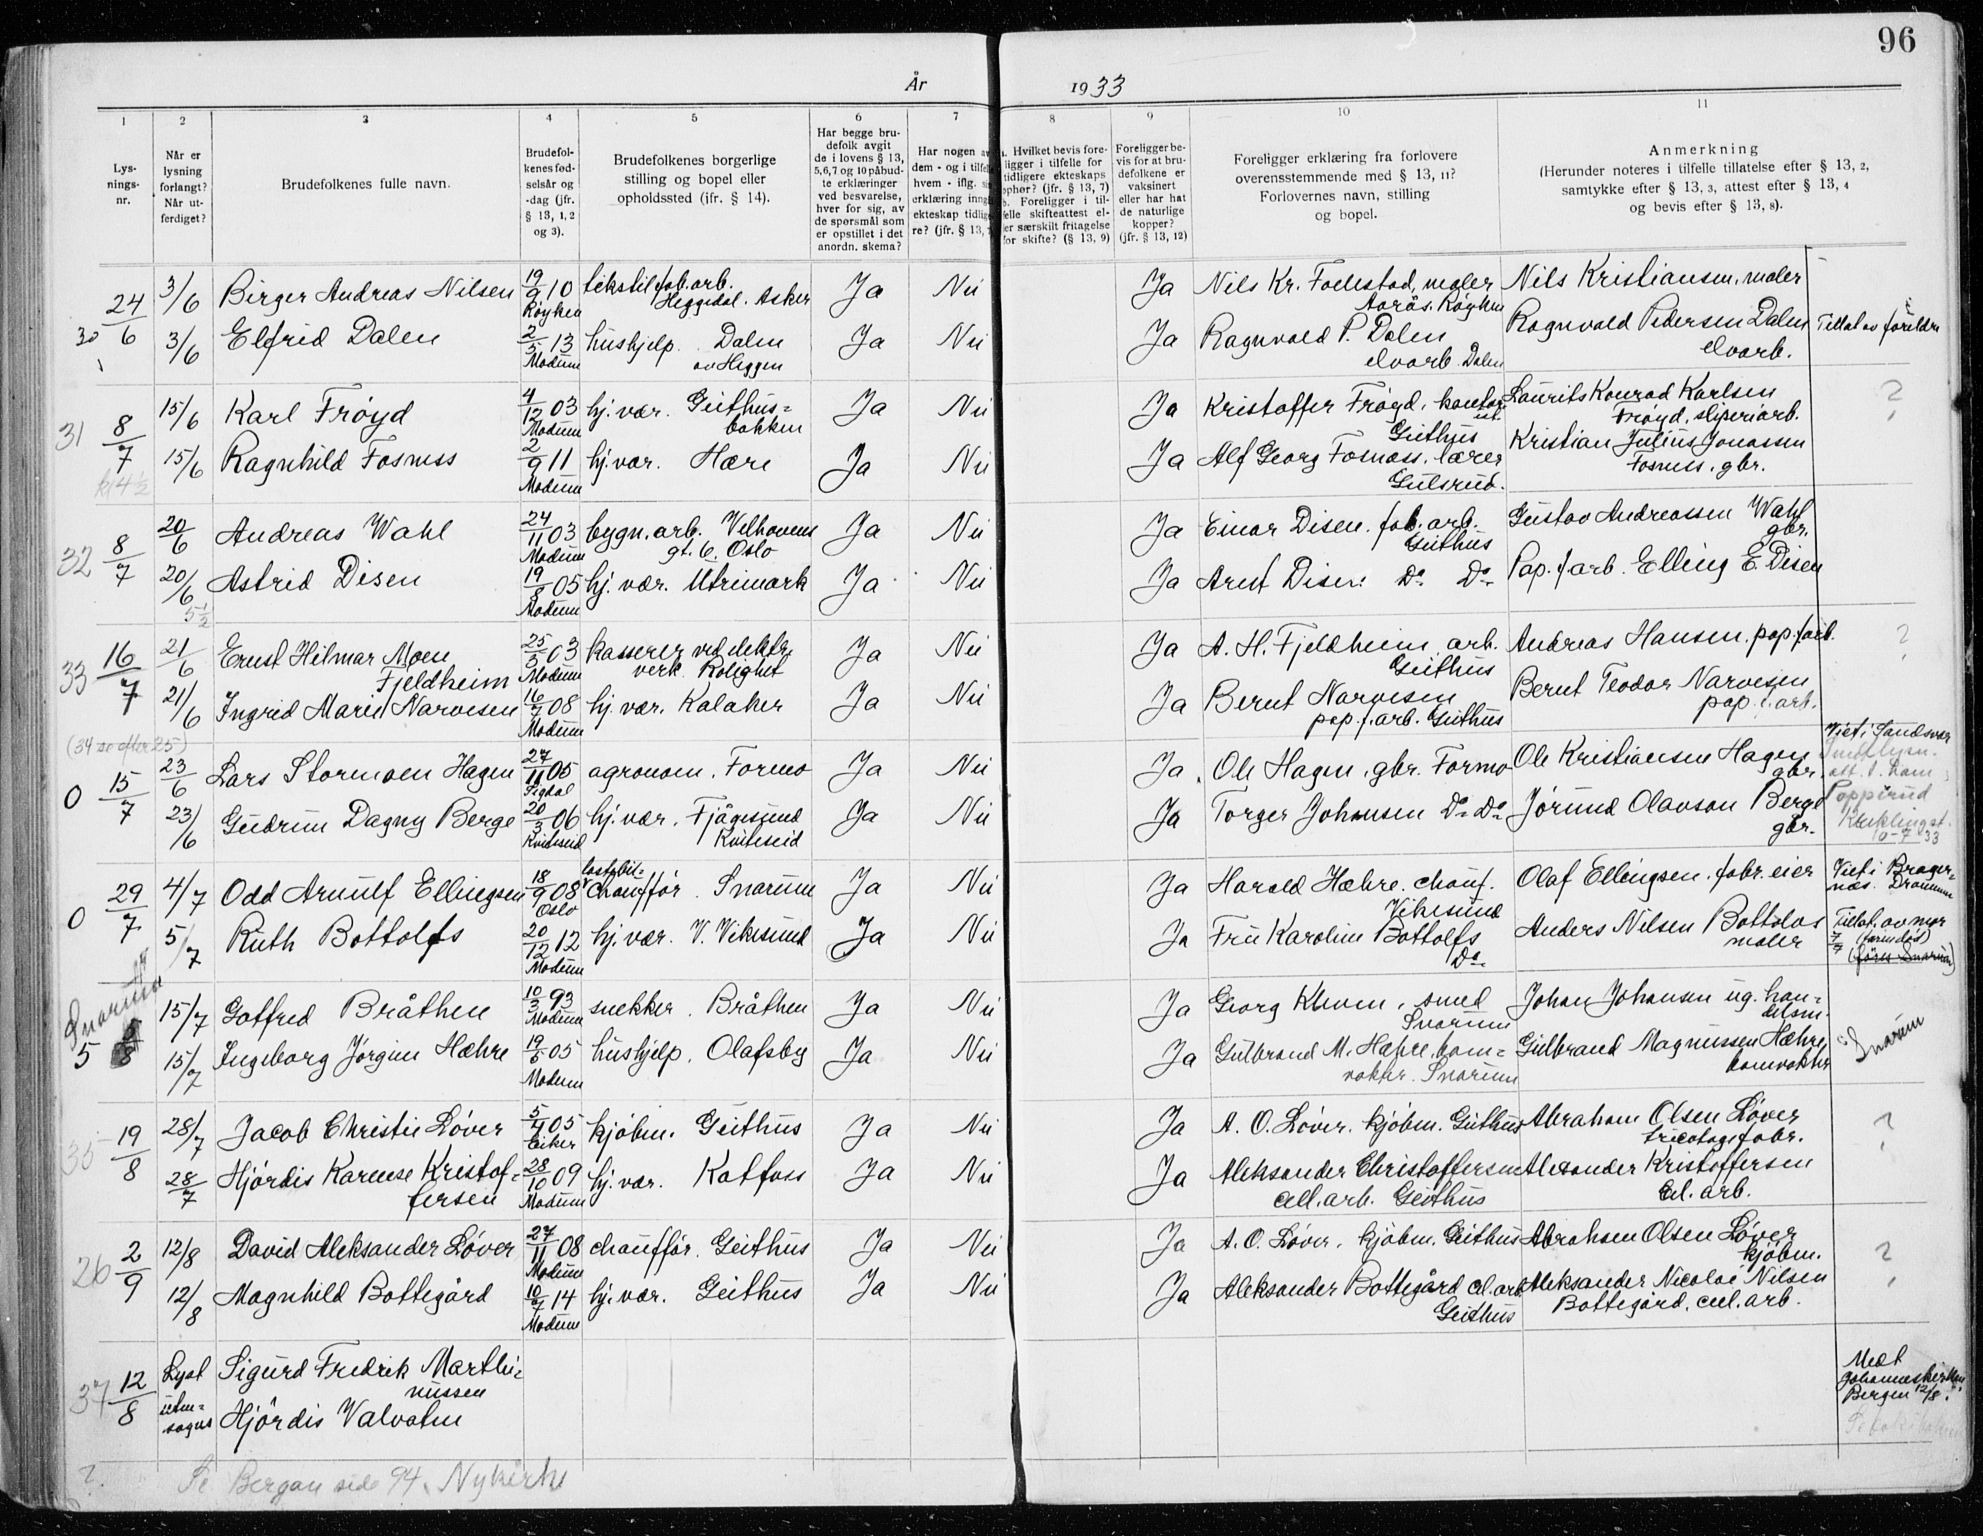 96
År 1933
1 2 3 4 5 6 7 8 9 10 11
Lys-
nings-
nr.
Når er
lysning
forlangt?
Når ut-
ferdiget?
Brudefolkenes fulle navn.
Brudefol-
kenes fød-
selsår og
-dag (jfr.
§ 13, 1, 2
og 3).
Brudefolkenes borgerlige
stilling og bopel eller
opholdssted (jfr. § 14).
Har begge bru-
defolk avgit
de i lovens § 13,
5,6,7 og 10 påbud-
te erklæringer
ved besvarelse,
hver for sig, av
de spørsmål som
er opstillet i det
anordn. skema?
Har nogen av
dem - og i tilfelle
hvem - iflg.
erklæring inng
ekteskap tidlig
re? (jfr. § 13,
Hvilket bevis fore-
ligger i tilfelle for
tidligere ekteskaps
ophør? (jfr. § 13, 7)
Foreligger i til-
felle skifteattest el-
er særskilt fritagelse
for skifte? (§ 13, 9)
Foreligger be-
vis for at bru-
defolkene er
vaksinert
eller har hat
de naturlige
kopper?
(jfr. § 13, 12)
Foreligger erklæring fra forlovere
overensstemmende med § 13, 11?
Forlovernes navn, stilling
og bopel.
Anmerkning
(Herunder noteres i tilfelle tillatelse efter § 13, 2,
samtykke efter § 13, 3, attest efter § 13, 4
og bevis efter § 13, 8).
30 24/6 3/6 Birger Andreas Nilsen 19/9 10 Røyken tekstilfab.arb. Heggedal. Asker Ja Nei Ja Nils Kr. Follestad, maler Aarås. Røyken Nils Kristiansen, maler
3/6 Elfrid Dalen 2/5 13 Modum hushjelp. Dalen av Heggen Ja Nei Ja Ragnvald P. Dalen elvarb. Dalen Ragnvald Pedersen Dalen elvarb. Tillat. av foreldre
31 8/7 kl 4 1/2 15/6 Karl Frøyd 4/12 03 Modum hj. vær. Geithus= bakken Ja Nei Ja Kristoffer Frøyd, Geithus Laurits Konrad Karlsen Frøyd, sliperiarb. ?
15/6 Ragnhild Fosness 2/9 11 Modum hj. vær. Hære Ja Nei Ja Alf Georg Fosness, lærer Gulsrud. Kristian Julius Jonassen Fosness, gbr.
32 8/7 20/6 Andreas Wahl 24/11 03 Modum bygn.arb. Welhavens gt. 6. Oslo Ja Nei Ja Einar Disen. fab.arb. Geithus Gustav Andreassen Wahl gbr.
20/6 5 1/2 Astrid Disen 19/8 05 Modum hj. vær. Utrimark Ja Nei Ja Arnt Disen Do Do Pap.f.arb. Elling E. Disen
33 16/7 21/6 Ernst Hilmar Moen Fjeldheim 25/3 03 Modum kasserer ved elektr. verk. Rolighet Ja Nei Ja A. H. Fjeldheim, arb. Geithus Andreas Hansen, pap.f.arb. ?
21/6 Ingrid Marie Narvesen 16/7 08 Modum hj. vær. Kalaker Ja Nei Ja Bernt Narvesen pap.f.arb. Geithus Bernt Teodor Narvesen pap.f.arb.
(34 se efter 25)
0 15/7 23/6 Lars Stormoen Hagen 27/11 05 Sigdal agronom. Formo Ja Nei Ja Ole Hagen, gbr. Formo Ole Kristiansen Hagen gbr. Viet i Sandsvær
23/6 Gudrun Dagny Berge 20/3 06 Kviteseid hj. vær. Fjågesund Kviteseid Ja Nei Ja Torger Johnsen Do Do Jørund Olavson Berge gbr. 10-7-33
0 29/7 4/7 Odd Arnulf Ellingsen 18/9 08 Oslo lastebil= chauffør. Snarum Ja Nei Ja Harald Hæhre. chauf. Vikesund Olaf Ellingsen. fabr. eier Viet i Brager= nes. Drammen
5/7 Ruth Bottolfs 20/12 12 Modum hj. vær. V. Vikesund Ja Nei Ja Fru Karoline Bottolfs Do Anders Nilsen Bottolfs maler Tillat. av mor 7/7
Snarum 5/8 15/7 Gotfred Bråthen 10/3 93 Modum snekker. Bråthen Ja Nei Ja Georg Kleven, smed Snarum Johan Johansen ug. han= delsm.
15/7 Ingeborg Jørgine Hæhre 19/6 05 Modum hushjelp. Olafsby Ja Nei Ja Gulbrand M. Hæhre, ban= vokter. Snarum Gulbrand Magnussen Hæhre, banvokter Snarum
35 19/8 28/7 Jacob Christie Løver 5/4 05 Eiker kjøbm. Geithus Ja Nei Ja A. O. Løver. kjøbm. Geithus Abraham Olsen Løver tricotagefabr. ?
28/7 Hjørdis Karense Kristof= fersen 28/10 09 Modum hj. vær. Katfoss Ja Nei Ja Aleksander Christoffersen cell.arb. Geithus Alexander Kristoffersen cel. arb.
26 2/9 12/8 David Aleksander Løver 27/11 08 Modum chauffør. Geithus Ja Nei Ja A. O. Løver. kjøbm. Geithus Abraham Olsen Løver kjøbm. ?
12/8 Magnhild Bottegård 10/7 14 Modum hj. vær. Geithus Ja Nei Ja Aleksander Bottegård cel.arb. Geithus Aleksander Nicolai Nilsen Bottegård, cel. arb.
37 12/8 Lyst uten= sogns Sigurd Fredrik Marthi= nussen Johanneskirken Bergen 12/8.
Hjørdis Valvatn
? Se Bergan side 94. Nykirke